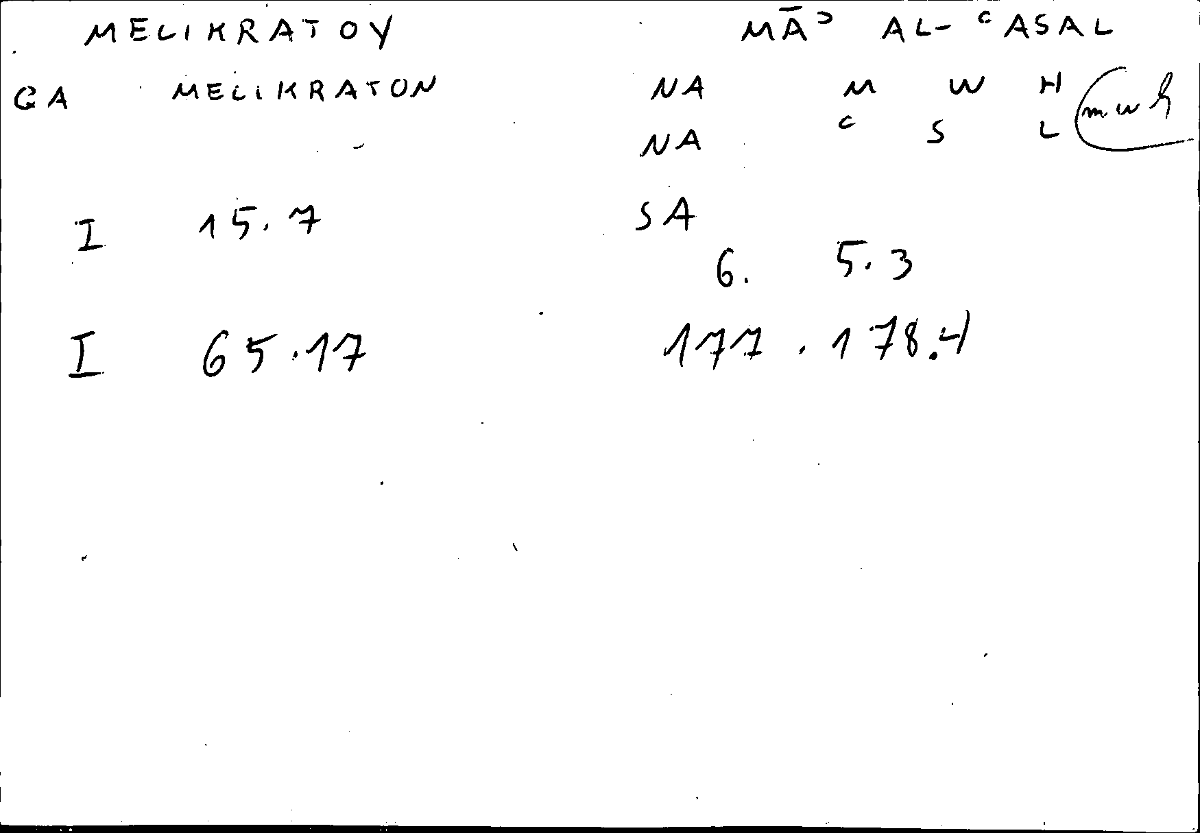 MELIKRATOY MĀʾ AL-ʿASAL
GA MELIKRATON NA M W H mwh
NA ʿ S L
I 15.7 SA
6. 5.3
I 65.17 177.178.4